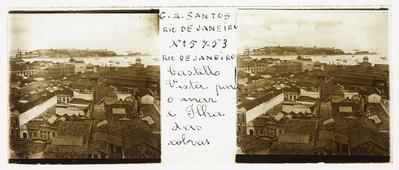 G. A. SANTOS
RIO DE JANEIRO
RIO DE JANEIRO
Castello
Vista para
o mar
e Ilha
das
cobras